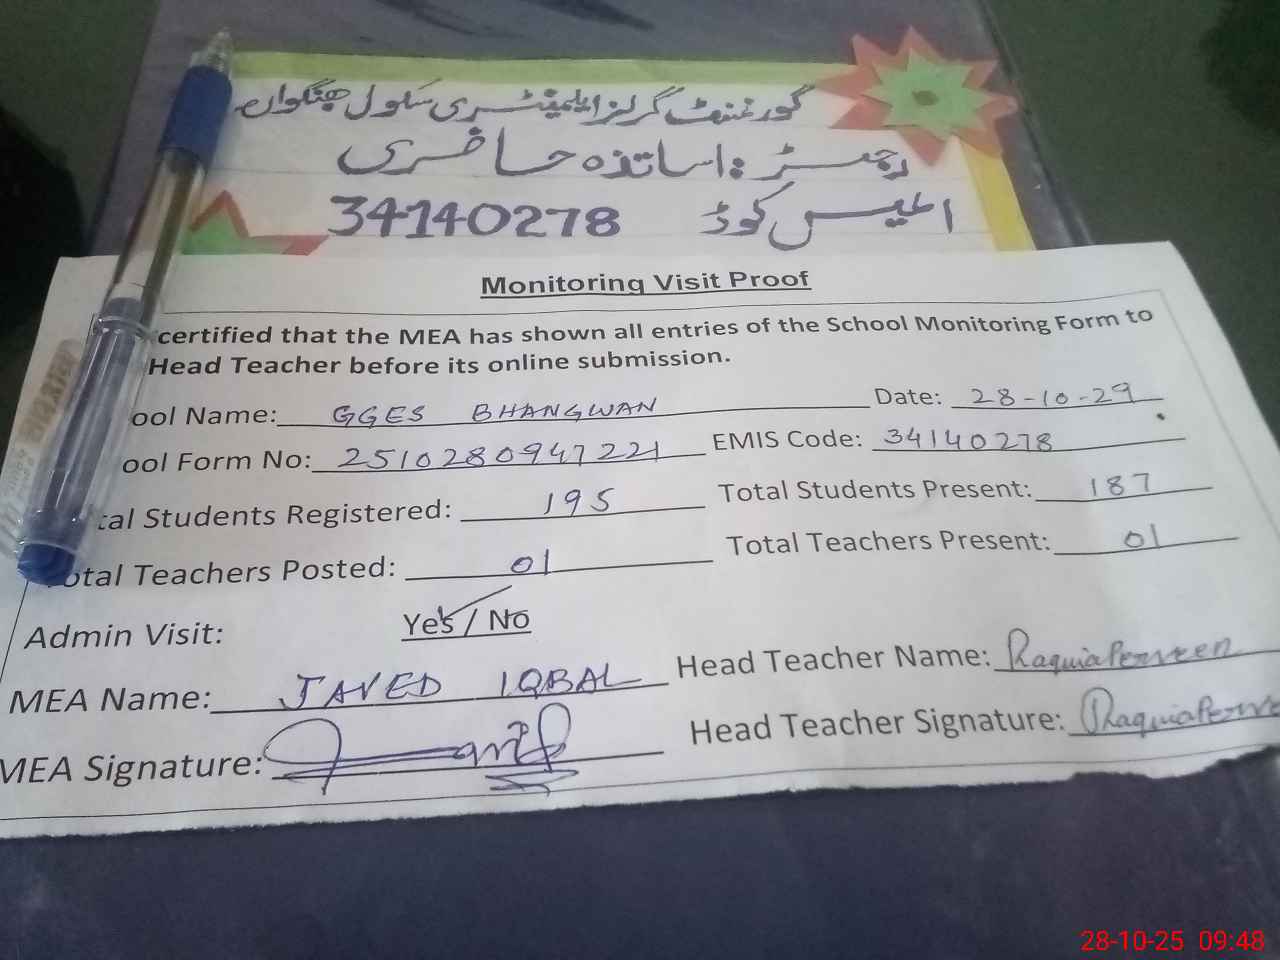 گورنمنٹ گرلز ایلیمنٹری سکول بھنگواں
رجسٹر : اساتذہ حاضری
ایمیس کوڈ 34140278
Monitoring Visit Proof
certified that the MEA has shown all entries of the School Monitoring Form to
Head Teacher before its online submission.
ool Name: GGES BHANGWAN Date: 28-10-29
ool Form No: 2510280947221 EMIS Code: 34140278
tal Students Registered: 195 Total Students Present: 187
Total Teachers Posted: 01 Total Teachers Present: 01
Admin Visit: Yes / No
MEA Name: JAVED IQBAL Head Teacher Name: Raquia Perveen
MEA Signature: Head Teacher Signature: Raquia Perve
28-10-25 09:48